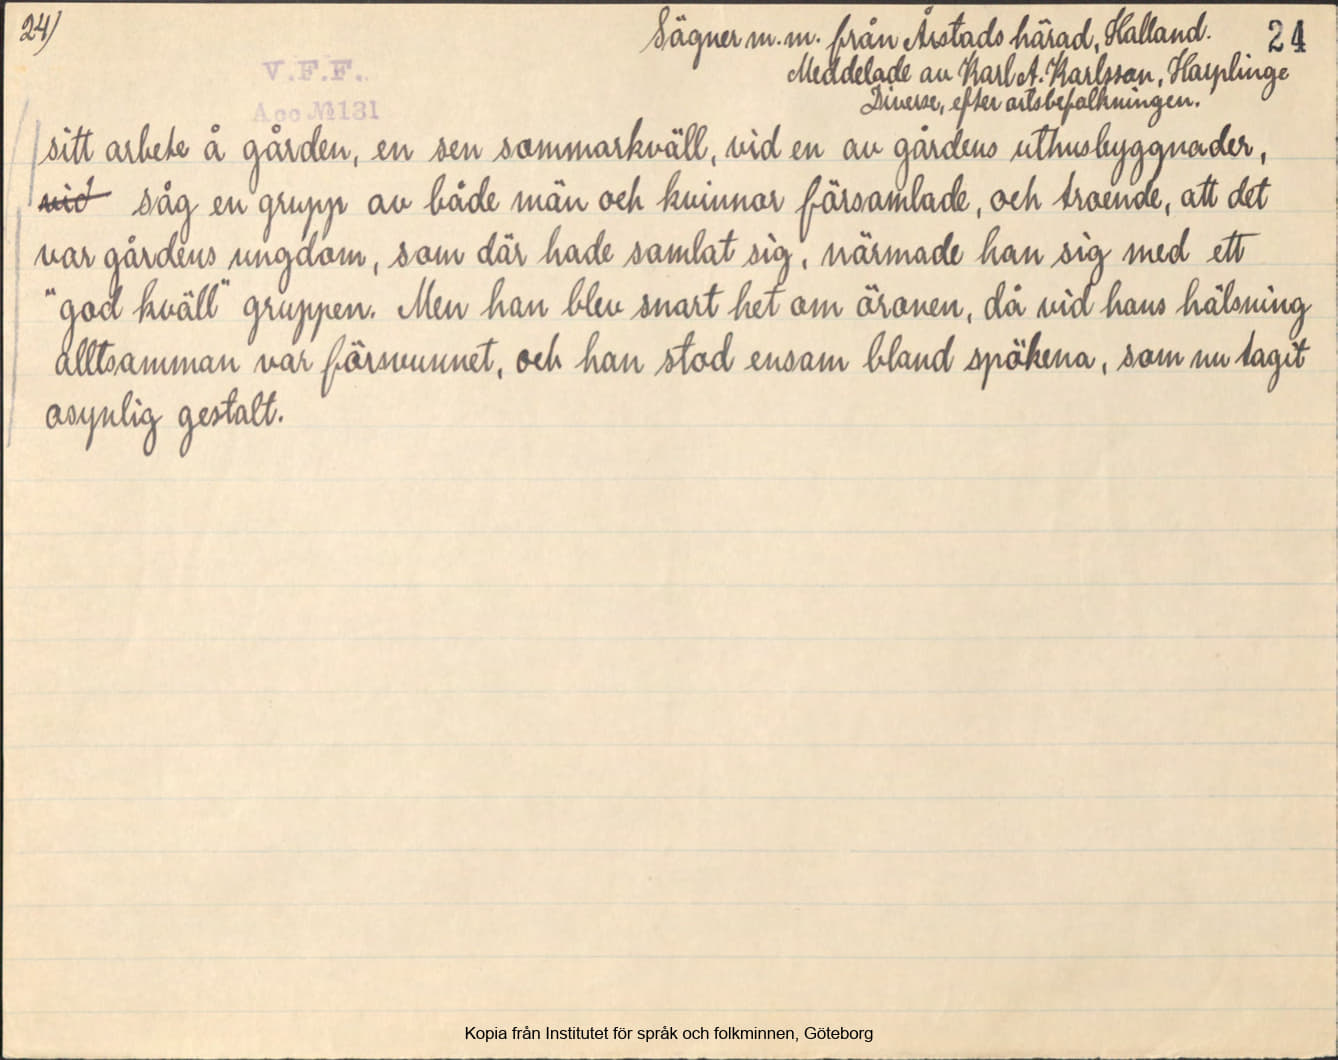 24)
Sägner m.m. från Årstads härad, Halland.
24
Meddelade av Karl A. Karlsson, Harplinge
Diverse, efter ortsbefolkningen.
V.F.F.
Acc № 131
sitt arbete å gården, en sen sommarkväll, vid en av gårdens uthusbyggnader,
vid såg en grupp av både män och kvinnor församlade, och troende, att det
var gårdens ungdom, som där hade samlat sig, närmade han sig med ett
"god kväll" gruppen. Men han blev snart het om öronen, då vid hans hälsning
alltsamman var försvunnet, och han stod ensam bland spökena, som nu tagit
osynlig gestalt.
Kopia från Institutet för språk och folkminnen, Göteborg